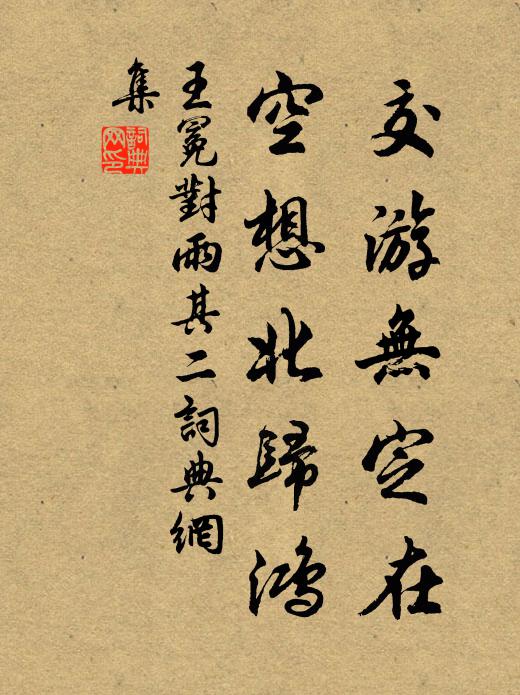 交游無定在
空想北歸鴻
王冕對雨其二詞典網
集
詞典
网印